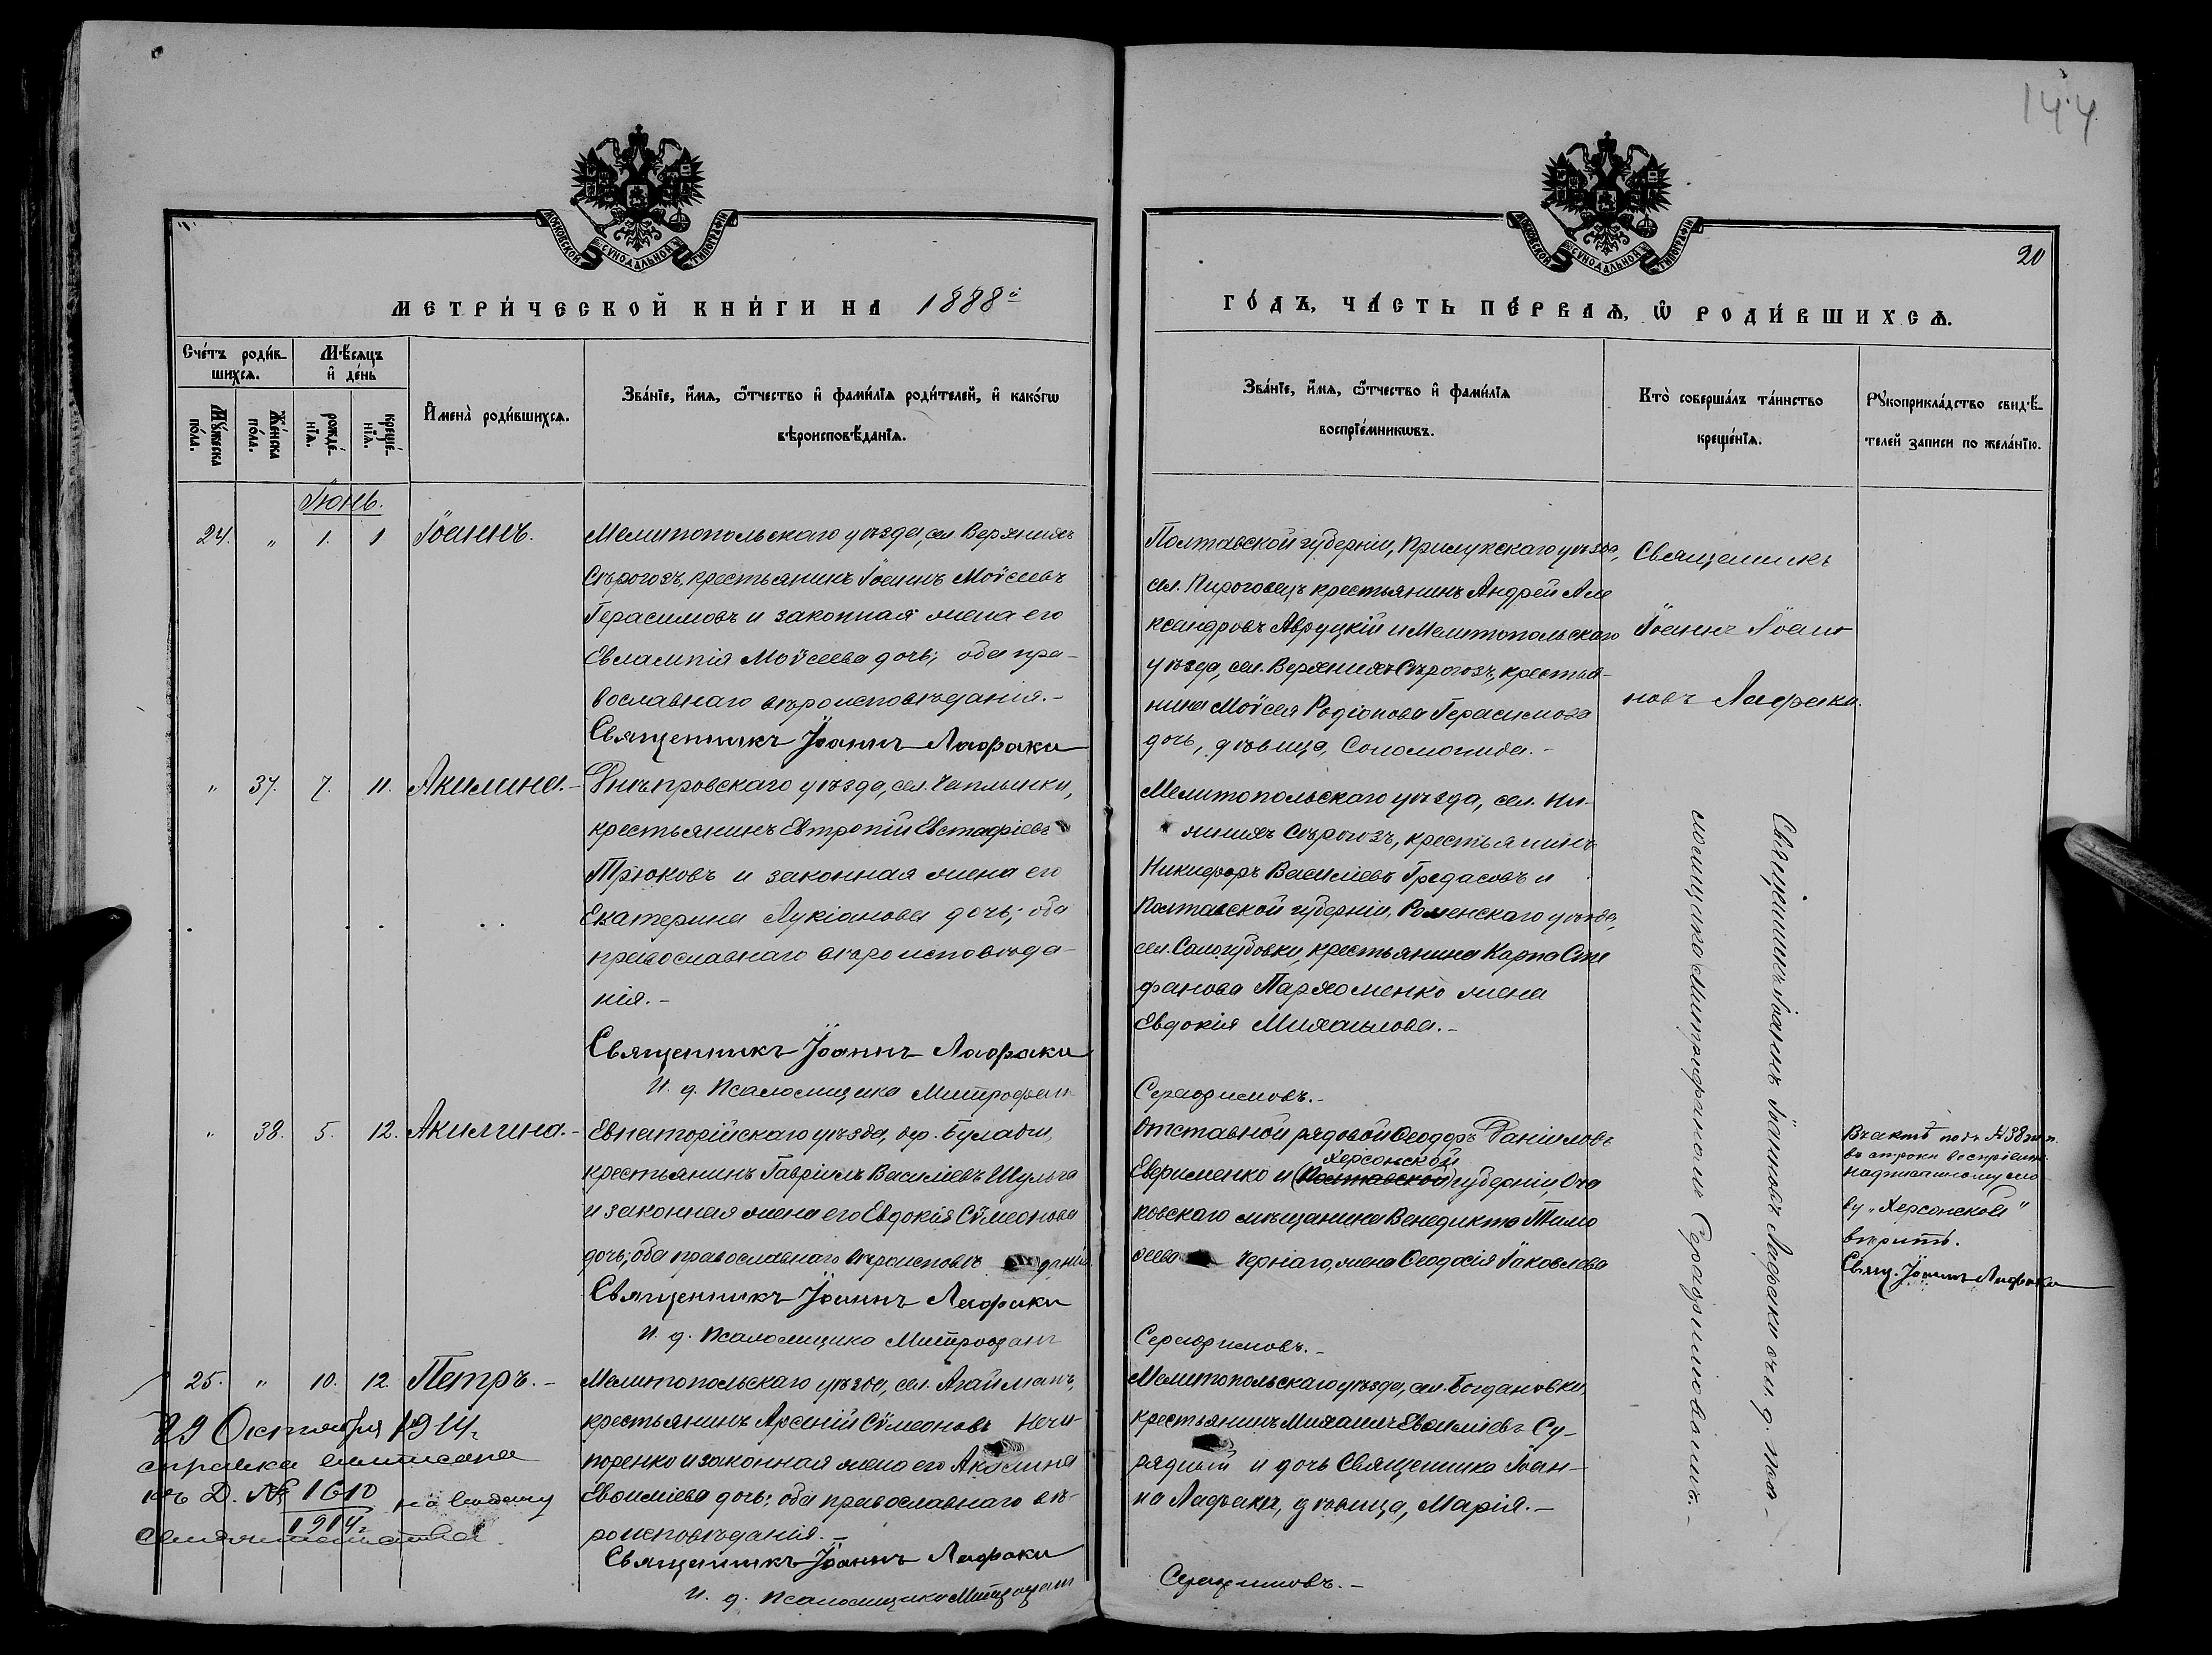 144
МОСКОВСКОЙ СѴНОДАЛЬНОЙ ТИПОГРАФІИ
МОСКОВСКОЙ СѴНОДАЛЬНОЙ ТИПОГРАФІИ
20
МЕТРИ́ЧЕСКОЙ КНИ́ГИ НА 1888й
ГО́ДЪ, ЧА́СТЬ ПЕ́РВАѦ, Ѡ҆ РОДИ́ВШИХСѦ.
Сче́тъ роди́в-
шихсѧ.
Мѣ́сѧцъ
и҆ де́нь
Мꙋ́жеска
по́ла.
Же́нска
по́ла.
рожде́-
нїѧ.
креще́-
нїѧ.
И҆мена̀ роди́вшихсѧ.
Зва́нїе, и҆́мѧ, ѻ҆́тчество и҆ фами́лїѧ роди́телей, и҆ како́гѡ
вѣроисповѣ́данїѧ.
Зва́нїе, и҆́мѧ, ѻ҆́тчество и҆ фами́лїѧ
воспрїе́мникѡвъ.
Кто̀ соверша́лъ та́инство
креще́нїѧ.
Рꙋкоприкла́дство свидѣ́-
телей записи по жела́нїю.
Іюнь.
24. " 1. 1 Іоаннъ.
Мелитопольскаго уѣзда, сел. Верхнихъ
Сѣрогозъ, крестьянинъ Іоаннъ Моѵсеевъ
Герасимовъ и законная жена его
Евлампія Моѵсеева дочь; оба пра-
вославнаго вѣроисповѣданія.-
Священникъ Іоаннъ Лафаки
Полтавской губерніи, Прилукскаго уѣзда,
сел. Пироговецъ крестьянинъ Андрей Але
ксандровъ Авруцкій и Мелитопольскаго
уѣзда, сел. Верхнихъ Сѣрогозъ, крестья-
нина Моѵсея Родіонова Герасимова
дочь, дѣвица, Соломонида.-
Священникъ
Іоаннъ Іоан
новъ Лафаки.
" 37. 7. 11. Акилина.-
Днѣпровскаго уѣзда, сел. Чаплынки,
крестьянинъ Евтропій Евстафіевъ
Трюковъ и законная жена его
Екатерина Лукіанова дочь; оба
православнаго вѣроисповѣда-
нія.-
Священникъ Іоаннъ Лафаки
И. д. Псаломщика Митрофанъ
Мелитопольскаго уѣзда, сел. Ни-
жнихъ Сѣрогозъ, крестьянинъ
Никифоръ Василіевъ Гредасовъ и
Полтавской губерніи, Роменскаго уѣзда,
сел. Сологубовки, крестьянина Карпа Сте
фанова Пархоменко жена
Евдокія Михаилова.-
Серафимовъ.-
Священникъ Іоаннъ Іоанновъ Лафаки съ и. д. пса-
ломщика Митрофаномъ Серафимовымъ.-
" 38. 5. 12. Акилина.-
Евпаторійскаго уѣзда, дер. Булатчи,
крестьянинъ Гавріилъ Василіевъ Шульга
и законная жена его Евдокія Сѵмеонова
дочь; оба православнаго вѣроисповѣ данія.
Священникъ Іоаннъ Лафаки
И. д. Псаломщика Митрофанъ
Отставной рядовой Ѳеодоръ Даніиловъ
Херсонской
Евфименко и (Полтавской) губерніи, Оча
ковскаго мѣщанина Венедикта Тимо
ѳеева Чернаго, жена Ѳеодосія Іаковлева
Серафимовъ.-
Въ актѣ подъ №38 ж.п.
въ строки воспріемн.
надписанному сло
ву „Херсонской"
вѣрить.
Свящ. Іоаннъ Лафаки
25. " 10. 12. Петръ.-
Мелитопольскаго уѣзда, сел. Агайманъ,
крестьянинъ Арсеній Сѵмеоновъ Нечи-
поренко и законная жена его Акилина
Евѳиміева дочь; оба православнаго вѣ-
роисповѣданія.-
Священникъ Іоаннъ Лафаки
И. д. Псаломщика Митрофанъ
Мелитопольскаго уѣзда, сел. Богдановки,
крестьянинъ Михаилъ Евѳиміевъ Су-
рядный и дочь Священника Іоан-
на Лафаки, дѣвица, Марія.-
Серафимовъ.-
29 Октября 1914г.
справка выписана
къ Д. № 1610
1914г. на выдачу
свидѣтельства.